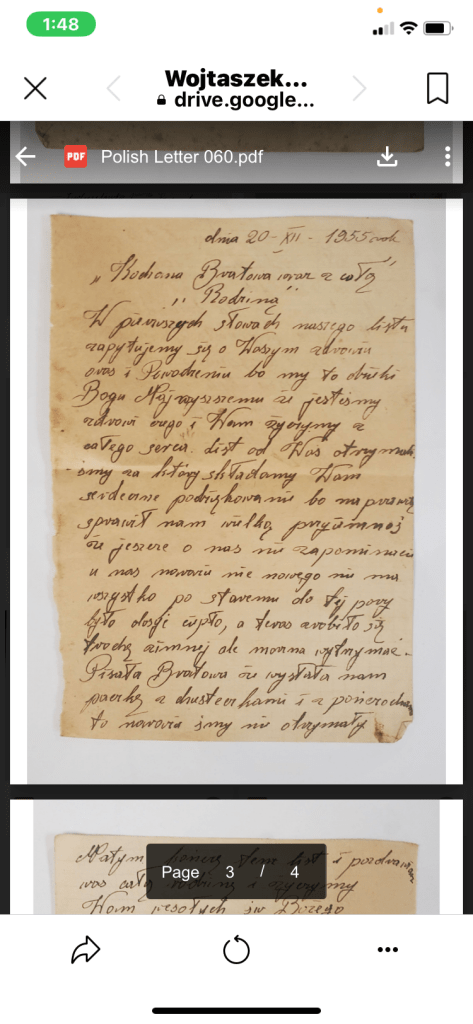 1:48
Wojtaszek...
drive.google...
PDF Polish Letter 060.pdf
dnia 20-XII-1955 rok
„Kochana Bratowa wraz z całą"
„Rodziną"
W pierwszych słowach naszego listu
zapytujemy się o Waszym zdrowiu
oras i Powodzeniu bo my to dzięki
Bogu Najwyższemu że jesteśmy
zdrowi czego i Wam życzymy z
całego serca. List od Was otrzymali
śmy za który składamy Wam
serdeczne podziękowanie bo naprawdę
sprawił nam wielką
że jeszcze o nas nie zapominacie
u nas nowoiu nie nowego nie ma
wszystko po staremu do tej pory
było dosyć ciepło, a teras zrobiło się
trochę zimnej ale można wytrzymać.
Pisała Bratowa że wysłała nam
paczkę z chusteczkami i z
to nowoiu śmy nie otrzymały
Małym kończę ten list i pozdrawiam
was całą rodziną i życzymy
Wam wesołych Bożego
Page 3 / 4